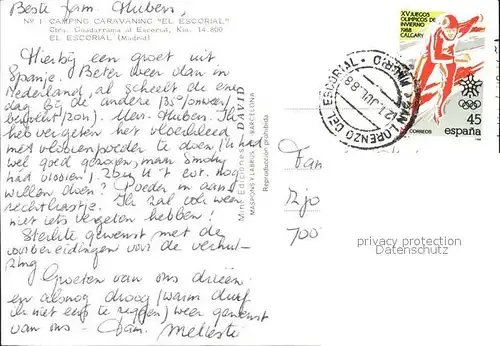 Beste fam. Huben,
Nº 1 CAMPING CARAVANING "EL ESCORIAL"
Ctra. Guadarrama al Escorial, Km. 14.800
EL ESCORIAL (Madrid)
Hierbij een groet uit
Spanje. Beter weer dan in
Nederland, al scheelt de ene
dag bij de andere (35°/onweer
bewolkt/20°). Mev. Huben. Ik
heb vergeten het vloerkleed
met vlooienpoeder te doen (ik had
wel goed gezogen, maar Smoky
had vlooien). Zou u 't evt. nog
willen doen? Poeder in aan-
rechtkastje. Ik zal ook weer
niet iets vergeten hebben!
Sterkte gewenst met de
voorbereidingen voor de verhui-
zing
Groeten van ons drieën
en alsnog droog (warm durf
ik niet eens te zeggen) weer gewenst
van ons - fam.
Mini Ediciones DAVID
MASPONS Y LABROS - BARCELONA
Reproducción prohibida
SAN LORENZO DEL ESCORIAL · MADRID
21 JUL 88
XV JUEGOS
OLIMPICOS DE
INVIERNO
1988
CALGARY
CORREOS
45
españa
Fam
700
privacy protection
watermark